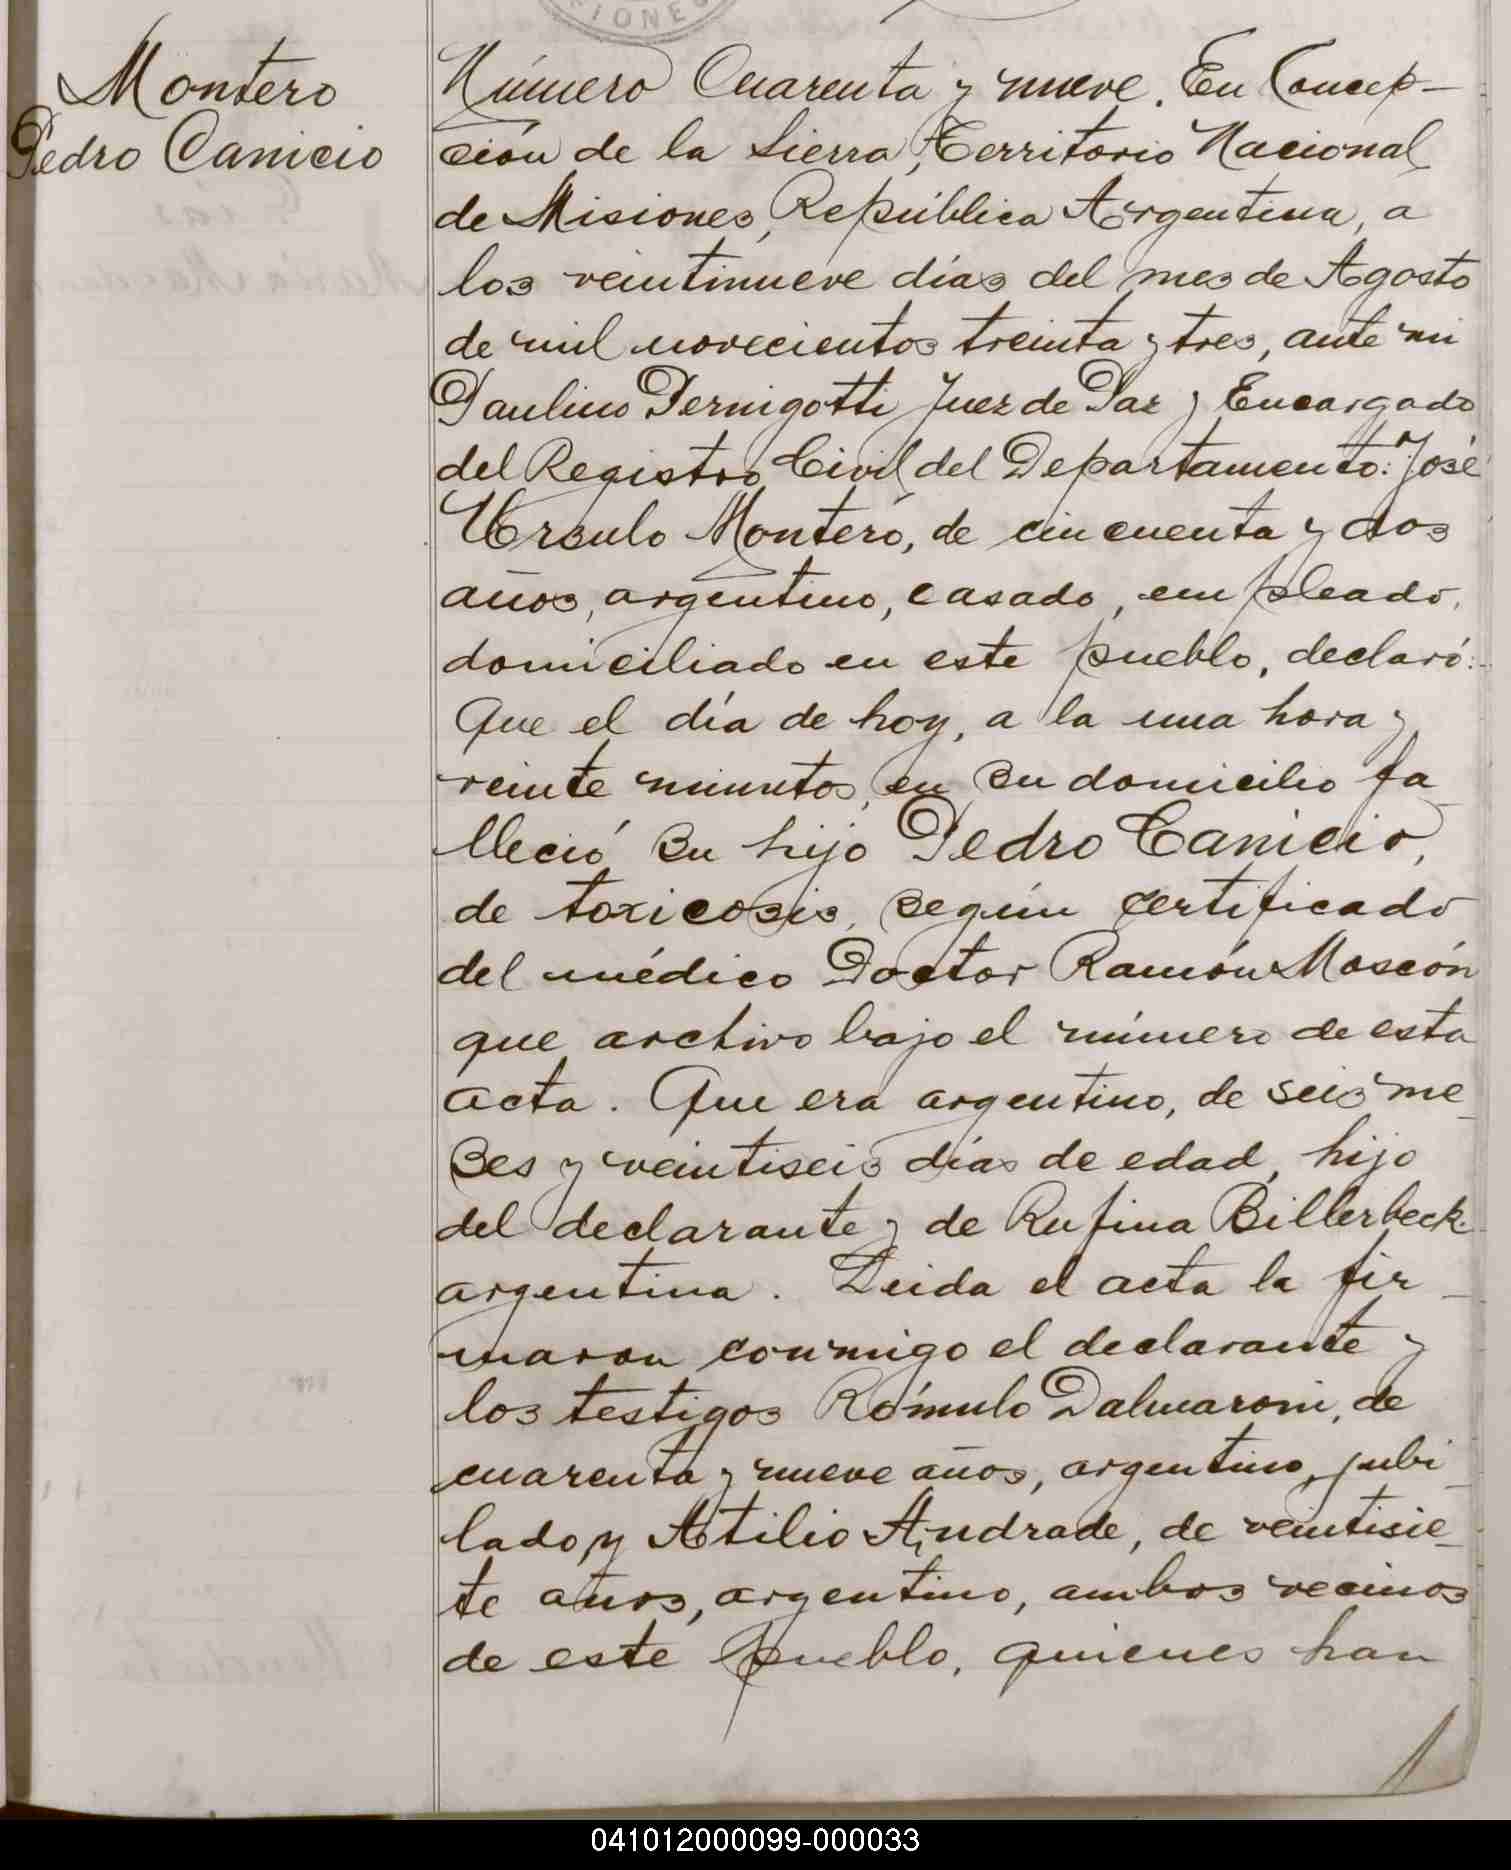 IONES
Montero
Pedro Canicio
Número Cuarenta y nueve. En Concep-
ción de la Sierra, Territorio Nacional
de Misiones, República Argentina, a
los veintinueve días del mes de Agosto
de mil novecientos treinta y tres, ante mi
Paulino Pernigotti Juez de Paz y Encargado
del Registro Civil del Departamento: José
Ursulo Montero, de cincuenta y dos
años, argentino, casado, empleado,
domiciliado en este pueblo, declaró:
Que el día de hoy, a la una hora y
veinte minutos, en su domicilio fa-
lleció su hijo Pedro Canicio,
de toxicosis, según certificado
del médico Doctor Ramón Mascón
que archivo bajo el número de esta
acta. Que era argentino, de seis me-
ses y veintiseis días de edad, hijo
del declarante y de Rufina Billerbeck
argentina. Leida el acta la fir-
maron conmigo el declarante y
los testigos Rómulo Dalmaroni, de
cuarenta y nueve años, argentino, jubi-
lado, y Atilio Andrade, de veintisie-
te años, argentino, ambos vecinos
de este pueblo, quienes han
041012000099-000033